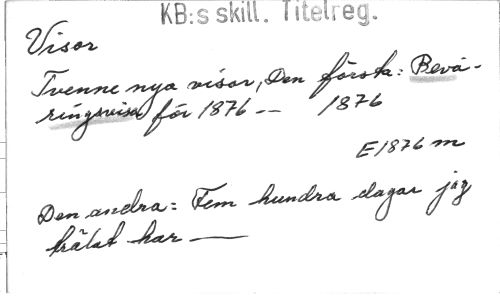 KB:s skill. Titelreg.
Visor
Tvenne nya visor, Den första: Bevä-
ringsvisa för 1876 -- 1876
E1876 m
Den andra: Fem hundra dagar jag
trälat har —